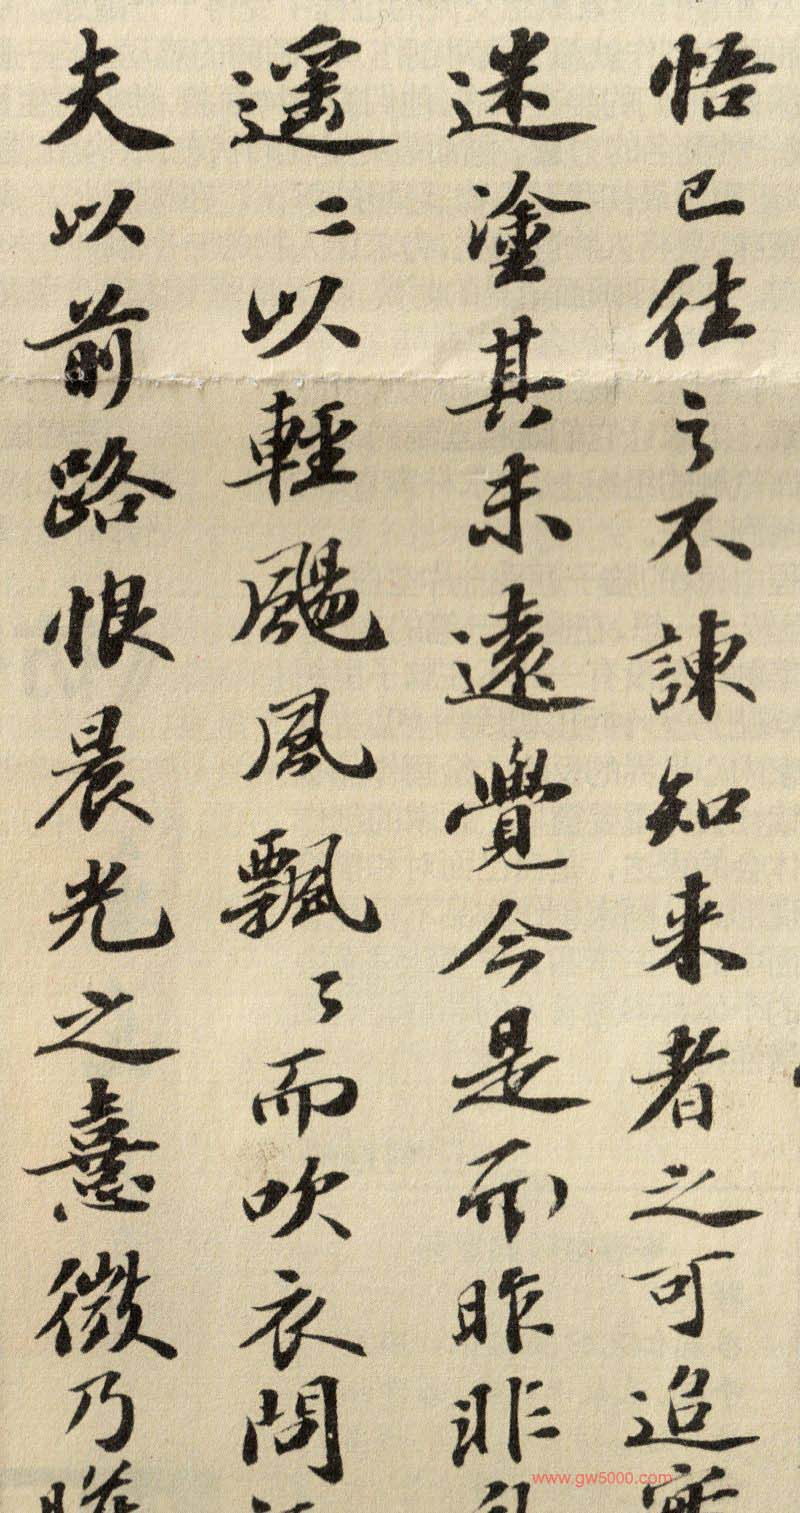 悟已往之不諫知来者之可追
迷塗其未遠覺今是而昨非
遥〻以輕颺風飄〻而吹衣問
夫以前路恨晨光之憙微乃
www.gw5000.com